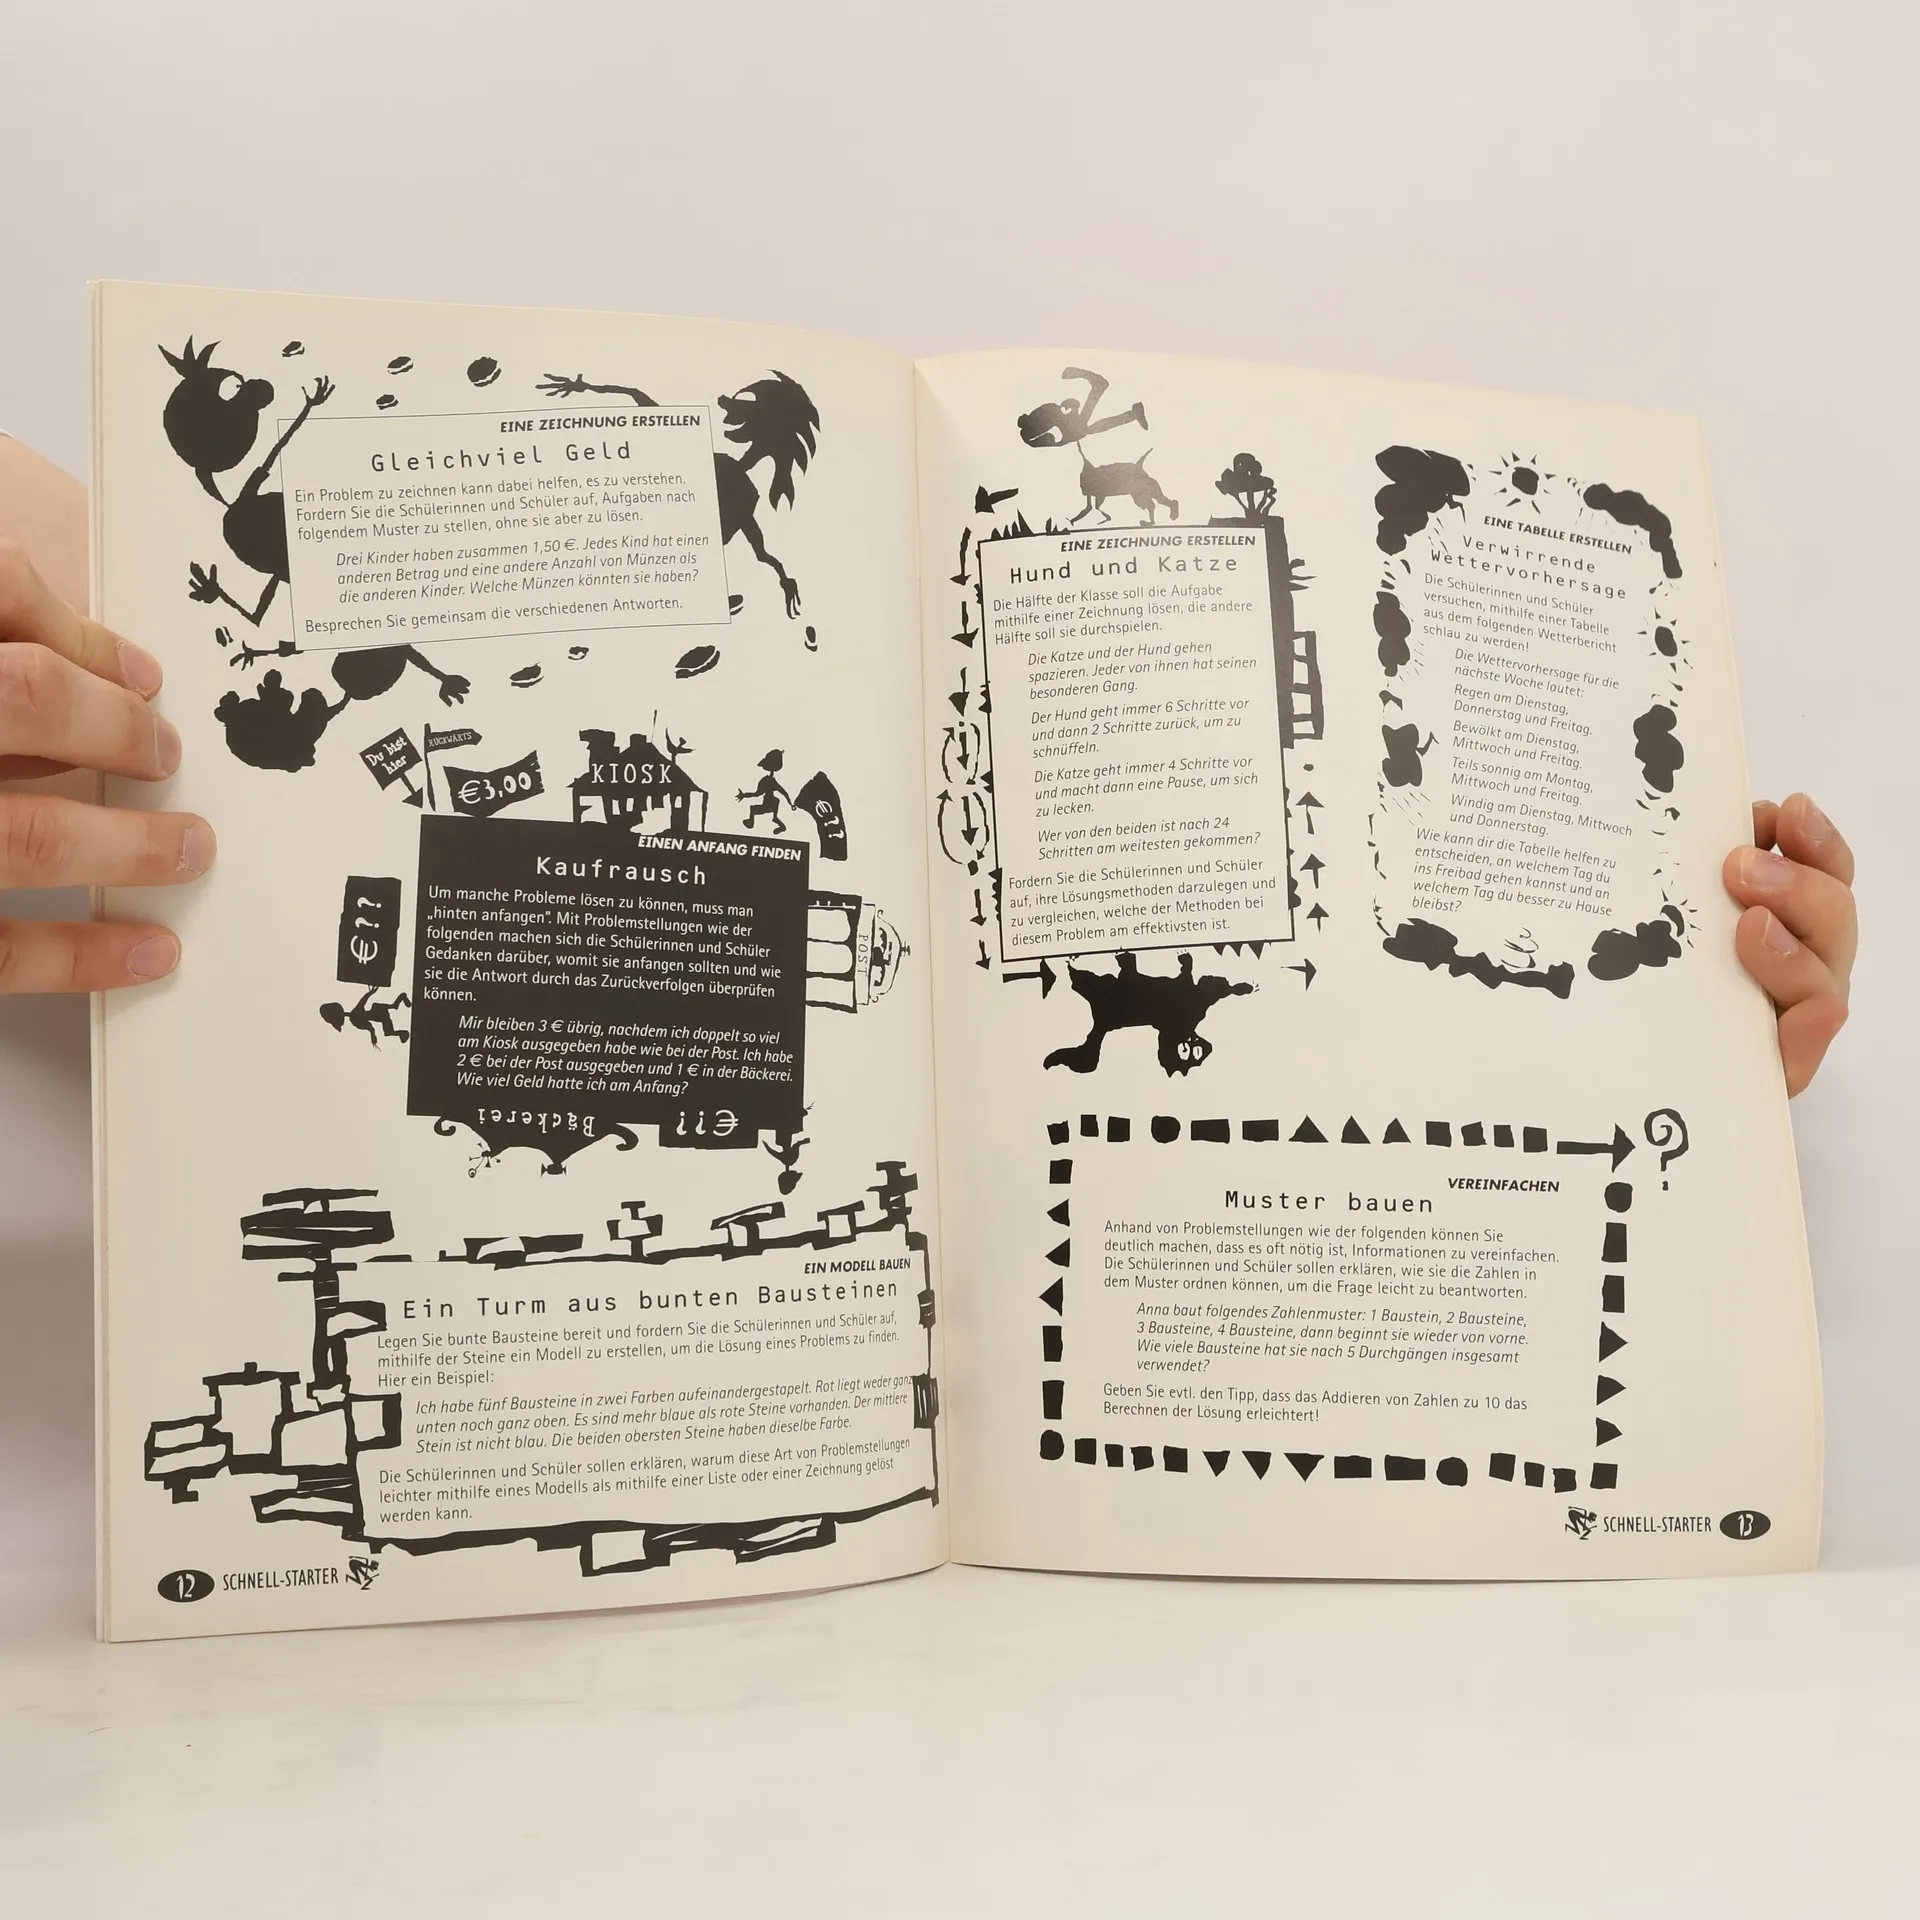 EINE ZEICHNUNG ERSTELLEN
Gleichviel Geld
Ein Problem zu zeichnen kann dabei helfen, es zu verstehen.
Fordern Sie die Schülerinnen und Schüler auf, Aufgaben nach
folgendem Muster zu stellen, ohne sie aber zu lösen.
Drei Kinder haben zusammen 1,50 €. Jedes Kind hat einen
anderen Betrag und eine andere Anzahl von Münzen als
die anderen Kinder. Welche Münzen könnten sie haben?
Besprechen Sie gemeinsam die verschiedenen Antworten.
Du bist
hier
RÜCKWÄRTS
€3,00
KIOSK
€??
EINEN ANFANG FINDEN
Kaufrausch
Um manche Probleme lösen zu können, muss man
„hinten anfangen“. Mit Problemstellungen wie der
folgenden machen sich die Schülerinnen und Schüler
Gedanken darüber, womit sie anfangen sollten und wie
sie die Antwort durch das Zurückverfolgen überprüfen
können.
Mir bleiben 3 € übrig, nachdem ich doppelt so viel
am Kiosk ausgegeben habe wie bei der Post. Ich habe
2 € bei der Post ausgegeben und 1 € in der Bäckerei.
Wie viel Geld hatte ich am Anfang?
€??
POST
Bäckerei
€??
EIN MODELL BAUEN
Ein Turm aus bunten Bausteinen
Legen Sie bunte Bausteine bereit und fordern Sie die Schülerinnen und Schüler auf,
mithilfe der Steine ein Modell zu erstellen, um die Lösung eines Problems zu finden.
Hier ein Beispiel:
Ich habe fünf Bausteine in zwei Farben aufeinandergestapelt. Rot liegt weder ganz
unten noch ganz oben. Es sind mehr blaue als rote Steine vorhanden. Der mittlere
Stein ist nicht blau. Die beiden obersten Steine haben dieselbe Farbe.
Die Schülerinnen und Schüler sollen erklären, warum diese Art von Problemstellungen
leichter mithilfe eines Modells als mithilfe einer Liste oder einer Zeichnung gelöst
werden kann.
12 SCHNELL-STARTER
EINE ZEICHNUNG ERSTELLEN
Hund und Katze
Die Hälfte der Klasse soll die Aufgabe
mithilfe einer Zeichnung lösen, die andere
Hälfte soll sie durchspielen.
Die Katze und der Hund gehen
spazieren. Jeder von ihnen hat seinen
besonderen Gang.
Der Hund geht immer 6 Schritte vor
und dann 2 Schritte zurück, um zu
schnüffeln.
Die Katze geht immer 4 Schritte vor
und macht dann eine Pause, um sich
zu lecken.
Wer von den beiden ist nach 24
Schritten am weitesten gekommen?
Fordern Sie die Schülerinnen und Schüler
auf, ihre Lösungsmethoden darzulegen und
zu vergleichen, welche der Methoden bei
diesem Problem am effektivsten ist.
EINE TABELLE ERSTELLEN
Verwirrende
Wettervorhersage
Die Schülerinnen und Schüler
versuchen, mithilfe einer Tabelle
aus dem folgenden Wetterbericht
schlau zu werden!
Die Wettervorhersage für die
nächste Woche lautet:
Regen am Dienstag,
Donnerstag und Freitag.
Bewölkt am Dienstag,
Mittwoch und Freitag.
Teils sonnig am Montag,
Mittwoch und Freitag.
Windig am Dienstag, Mittwoch
und Donnerstag.
Wie kann dir die Tabelle helfen zu
entscheiden, an welchem Tag du
ins Freibad gehen kannst und an
welchem Tag du besser zu Hause
bleibst?
VEREINFACHEN
Muster bauen
Anhand von Problemstellungen wie der folgenden können Sie
deutlich machen, dass es oft nötig ist, Informationen zu vereinfachen.
Die Schülerinnen und Schüler sollen erklären, wie sie die Zahlen in
dem Muster ordnen können, um die Frage leicht zu beantworten.
Anna baut folgendes Zahlenmuster: 1 Baustein, 2 Bausteine,
3 Bausteine, 4 Bausteine, dann beginnt sie wieder von vorne.
Wie viele Bausteine hat sie nach 5 Durchgängen insgesamt
verwendet?
Geben Sie evtl. den Tipp, dass das Addieren von Zahlen zu 10 das
Berechnen der Lösung erleichtert!
?
SCHNELL-STARTER 13